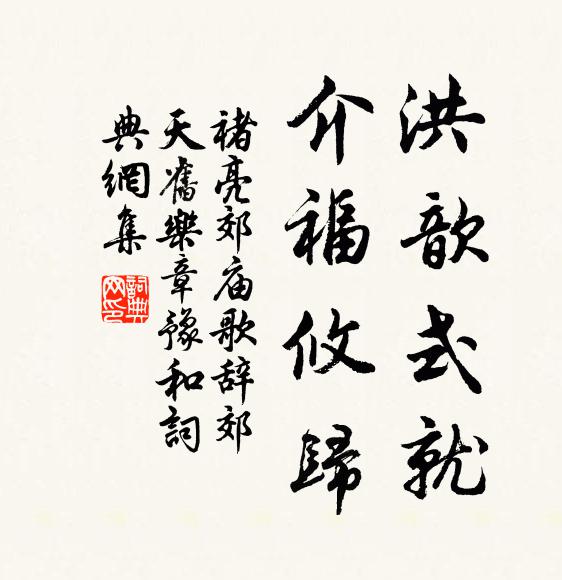 洪歆式就
介福攸歸
褚亮郊庙歌辞郊
天舊樂章豫和詞
典網集
詞典
网印